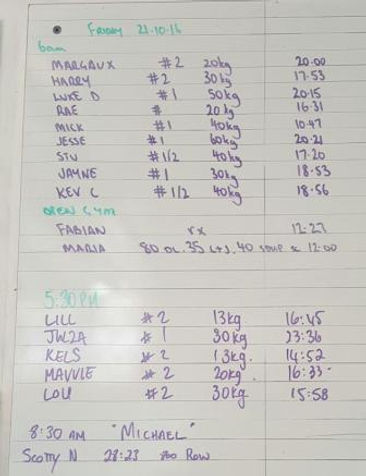 Friday 21.10.16
6am
MARGAUX #2 20kg 20.00
HARRY #2 30kg 17.53
LUKE D #1 50kg 20.15
RAE # 20kg 16.31
MICK #1 40kg 10.47
JESSE #1 60kg 20.21
STU #1/2 40kg 17.20
JAYNE #1 30kg 18.53
KEV C #1/2 40kg 18.56
OPEN GYM
FABIAN rx 12.27
MARIA 80 35 40 12.00
5:30PM
LILL #2 13kg 16:45
#1 30kg 23:36
KELS #2 13kg. 14:52
#2 20kg. 16:33
LOU #2 30kg 15:58
8:30 AM "MICHAEL"
Scotty N 28:23 Row